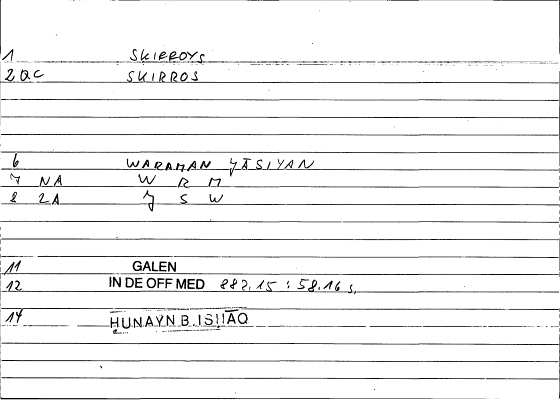 1 SKIRROYS
2 QC SKIRROS
6 WARAMAN ǦĀSIYAN
7 NA W R M
8 2A Ǧ S W
11 GALEN
12 IN DE OFF MED 882.15 : 58.16 s.
14 ḤUNAYN B. ISḤĀQ